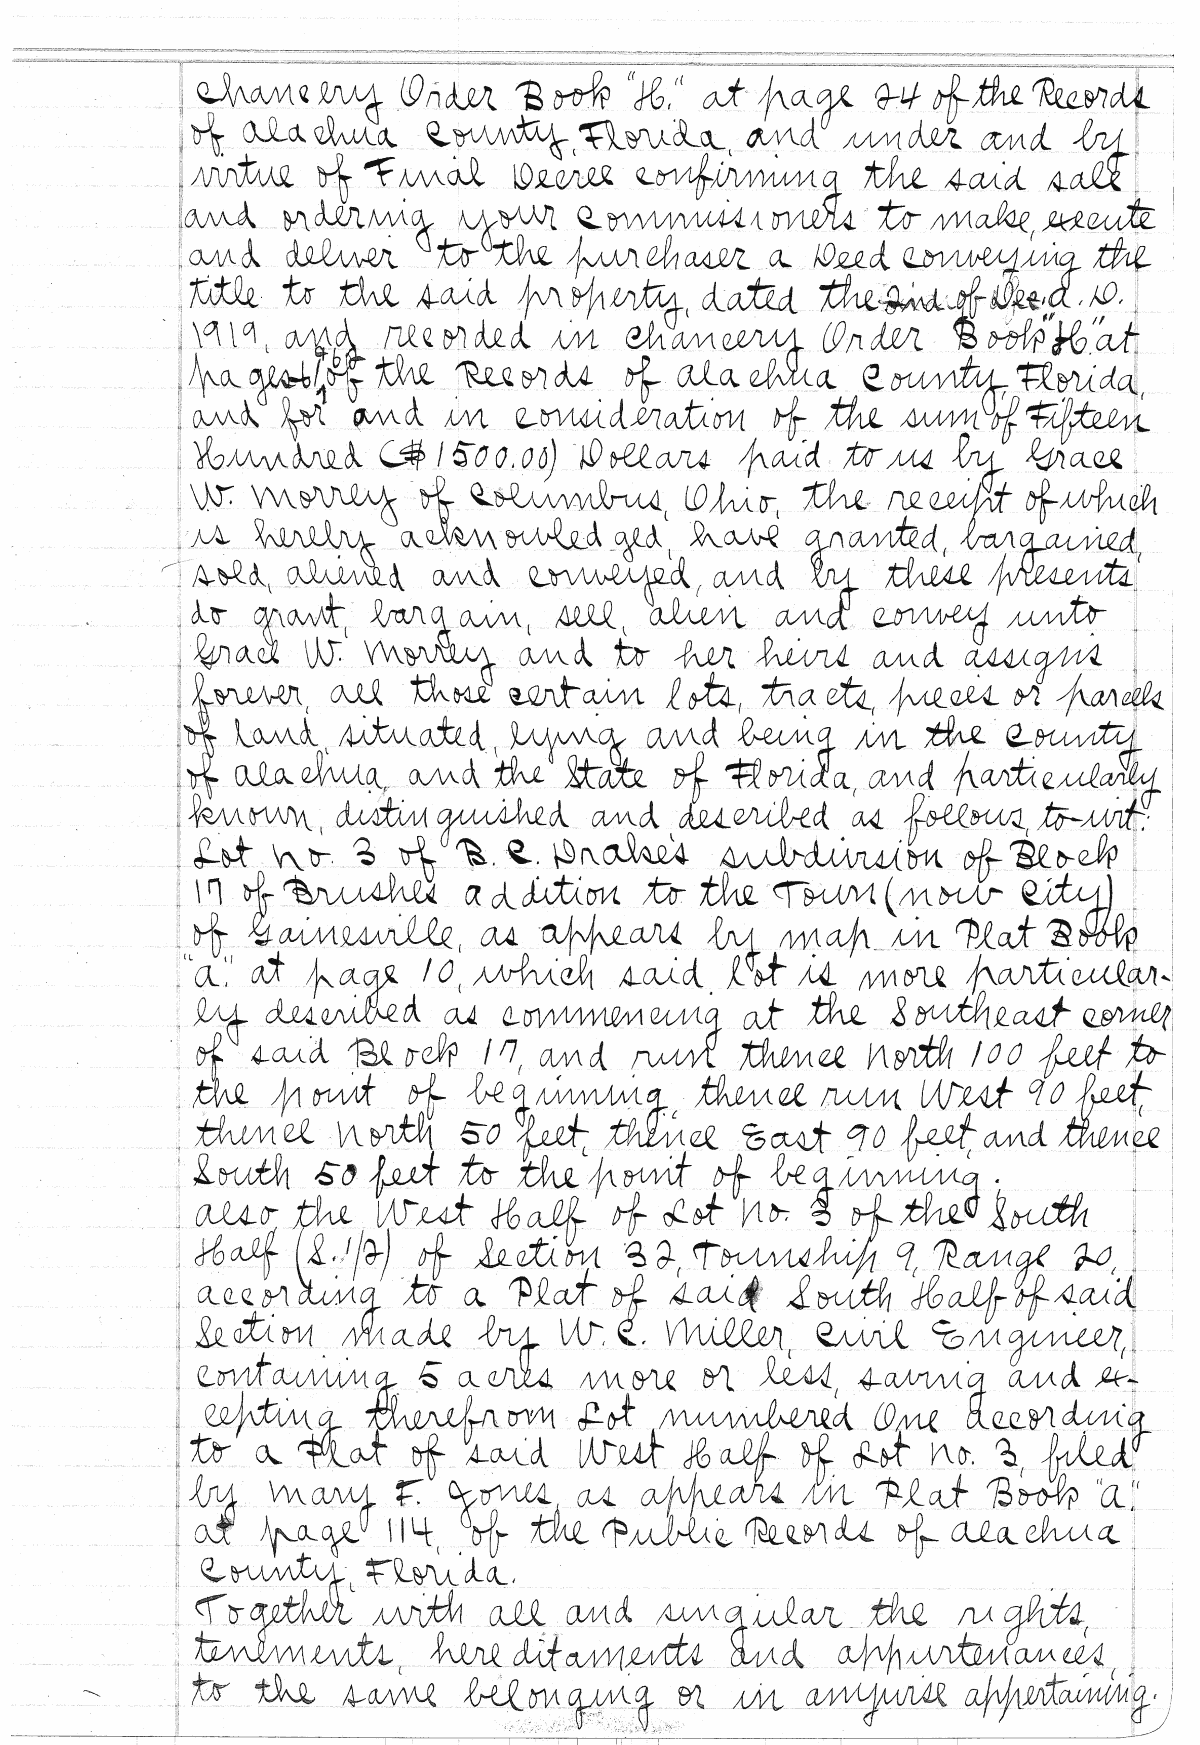 Chancery Order Book "H." at page 24 of the Records
of Alachua County, Florida, and under and by
virtue of Final Decree confirming the said sale
and ordering your Commissioners to make, execute
and deliver to the purchaser a Deed conveying the
title to the said property, dated the 2nd of Dec. A. D.
1919, and recorded in Chancery Order Book "H." at
pages of the Records of Alachua County, Florida,
and for and in consideration of the sum of Fifteen
Hundred ($1500.00) Dollars paid to us by Grace
W. Morrey of Columbus, Ohio, the receipt of which
is hereby acknowledged, have granted, bargained,
sold, aliened and conveyed, and by these presents
do grant, bargain, sell, alien and convey unto
Grace W. Morrey and to her heirs and assigns
forever, all those certain lots, tracts, pieces or parcels
of land, situated, lying and being in the County
of Alachua, and the State of Florida, and particularly
known, distinguished and described as follows, to-wit:
Lot No. 3 of B. C. Drake's subdivision of Block
17 of Brushes addition to the Town (now City)
of Gainesville, as appears by map in Plat Book
"A." at page 10, which said lot is more particular-
ly described as commencing at the Southeast corner
of said Block 17, and run thence North 100 feet to
the point of beginning, thence run West 90 feet,
thence North 50 feet, thence East 90 feet, and thence
South 50 feet to the point of beginning.
Also the West Half of Lot No. 3 of the South
Half (S. 1/2) of Section 32, Township 9, Range 20,
according to a Plat of said South Half of said
Section made by W. C. Miller, Civil Engineer,
containing 5 acres more or less, saving and ex-
cepting therefrom Lot numbered One according
to a Plat of said West Half of Lot No. 3, filed
by Mary F. Jones, as appears in Plat Book "A."
at page 114, of the Public Records of Alachua
County, Florida.
Together with all and singular the rights,
tenements, hereditaments and appurtenances,
to the same belonging or in anywise appertaining.